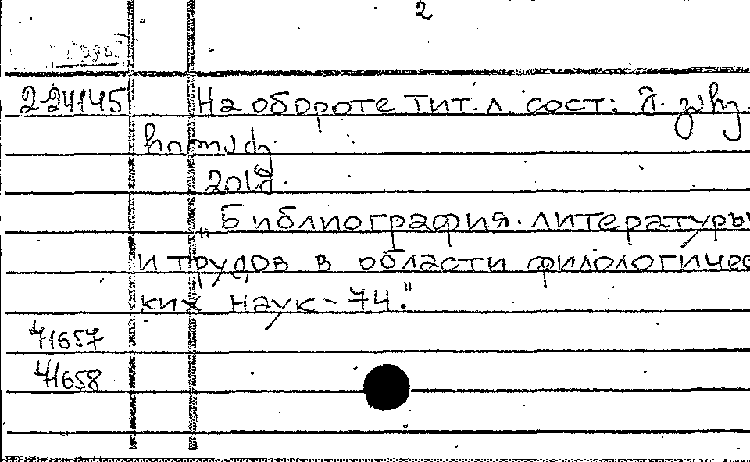 2
2-24145 На обороте тит. л. сост:
„Библиография. литературы
и трудов в области филологичес
ких наук-74."
41657
41658